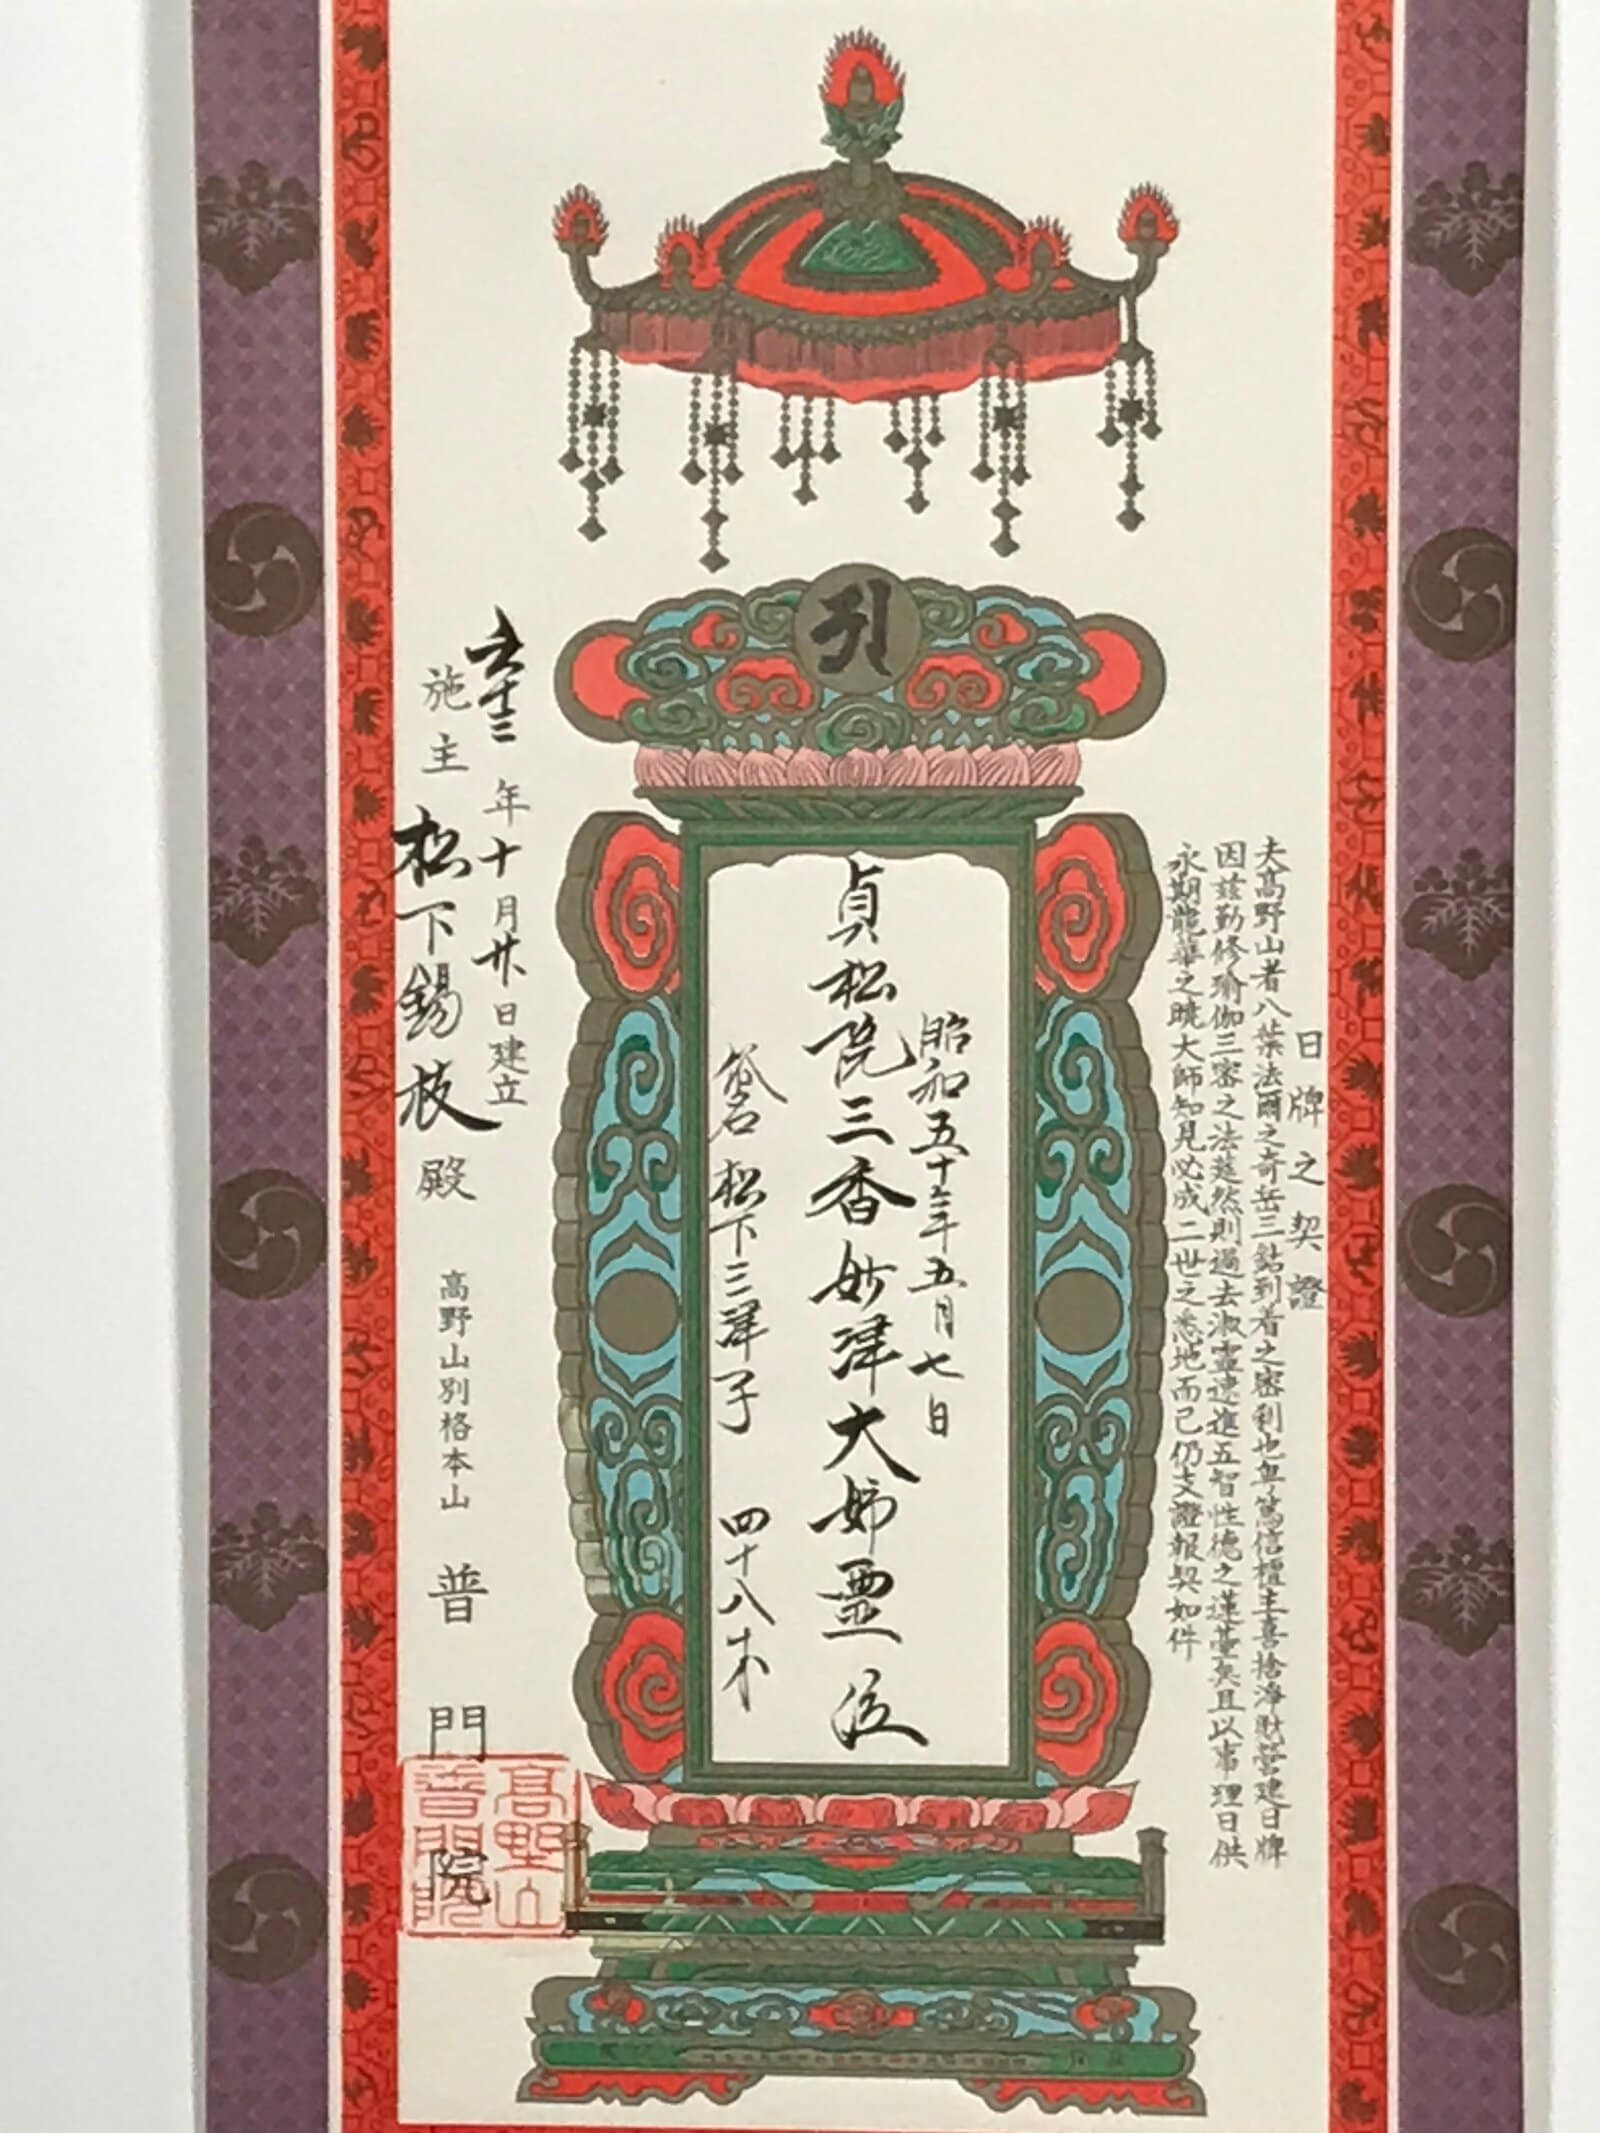 日牌之契證
夫高野山者八葉法爾之奇岳三鈷到着之密刹也與篤信檀主喜捨淨財営建日牌
因茲勤修瑜伽三密之法莚然則過去淑霊速進五智性徳之蓮臺矣且以事理日供
永期龍華之暁大師知見必成二世之悉地而已仍支證報契如件
昭和五十三年五月七日
貞松院三香妙津大姉霊位
松下三津子 四十八才
年十月廿日建立
施主 松下錫枝殿
高野山別格本山 普門院
高野山
普門院